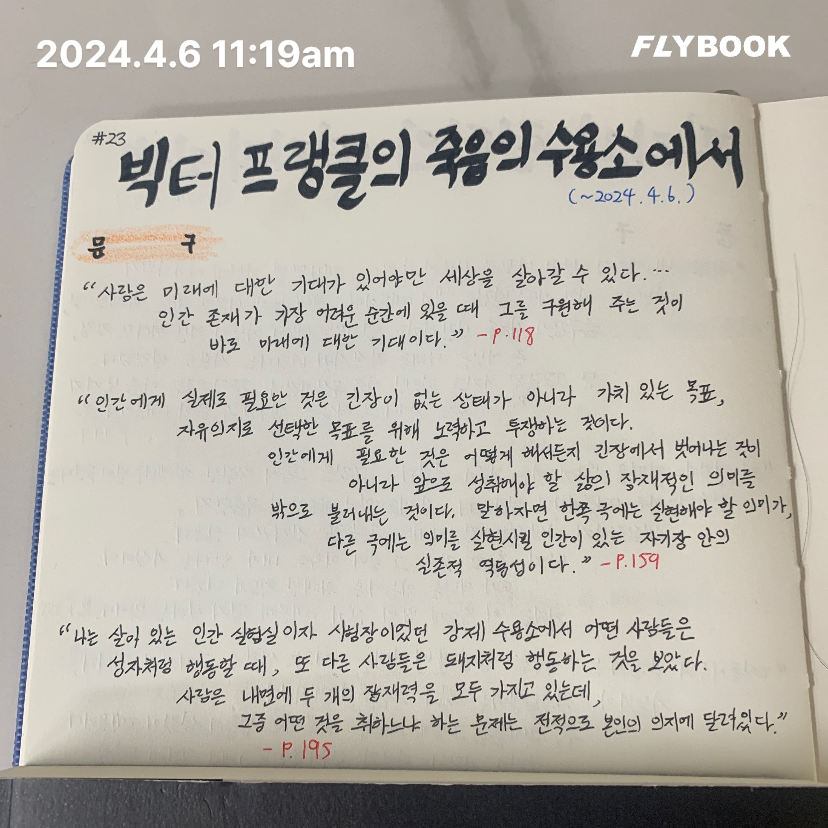 2024.4.6 11:19am
FLYBOOK
#23
빅터 프랭클의 죽음의 수용소에서
(~2024.4.6.)
문 구
“사람은 미래에 대한 기대가 있어야만 세상을 살아갈 수 있다.…
인간 존재가 가장 어려운 순간에 있을 때 그를 구원해 주는 것이
바로 미래에 대한 기대이다.” -P.118
“인간에게 실제로 필요한 것은 긴장이 없는 상태가 아니라 가치 있는 목표,
자유의지로 선택한 목표를 위해 노력하고 투쟁하는 것이다.
인간에게 필요한 것은 어떻게 해서든지 긴장에서 벗어나는 것이
아니라 앞으로 성취해야 할 삶의 잠재적인 의미를
밖으로 불러내는 것이다. 말하자면 한쪽 극에는 실현해야 할 의미가,
다른 극에는 의미를 실현시킬 인간이 있는 자기장 안의
실존적 역동성이다.” -P.159
“나는 살아 있는 인간 실험실이자 시험장이었던 강제 수용소에서 어떤 사람들은
성자처럼 행동할 때, 또 다른 사람들은 돼지처럼 행동하는 것을 보았다.
사람은 내면에 두 개의 잠재력을 모두 가지고 있는데,
그중 어떤 것을 취하느냐 하는 문제는 전적으로 본인의 의지에 달려있다.”
- P.195